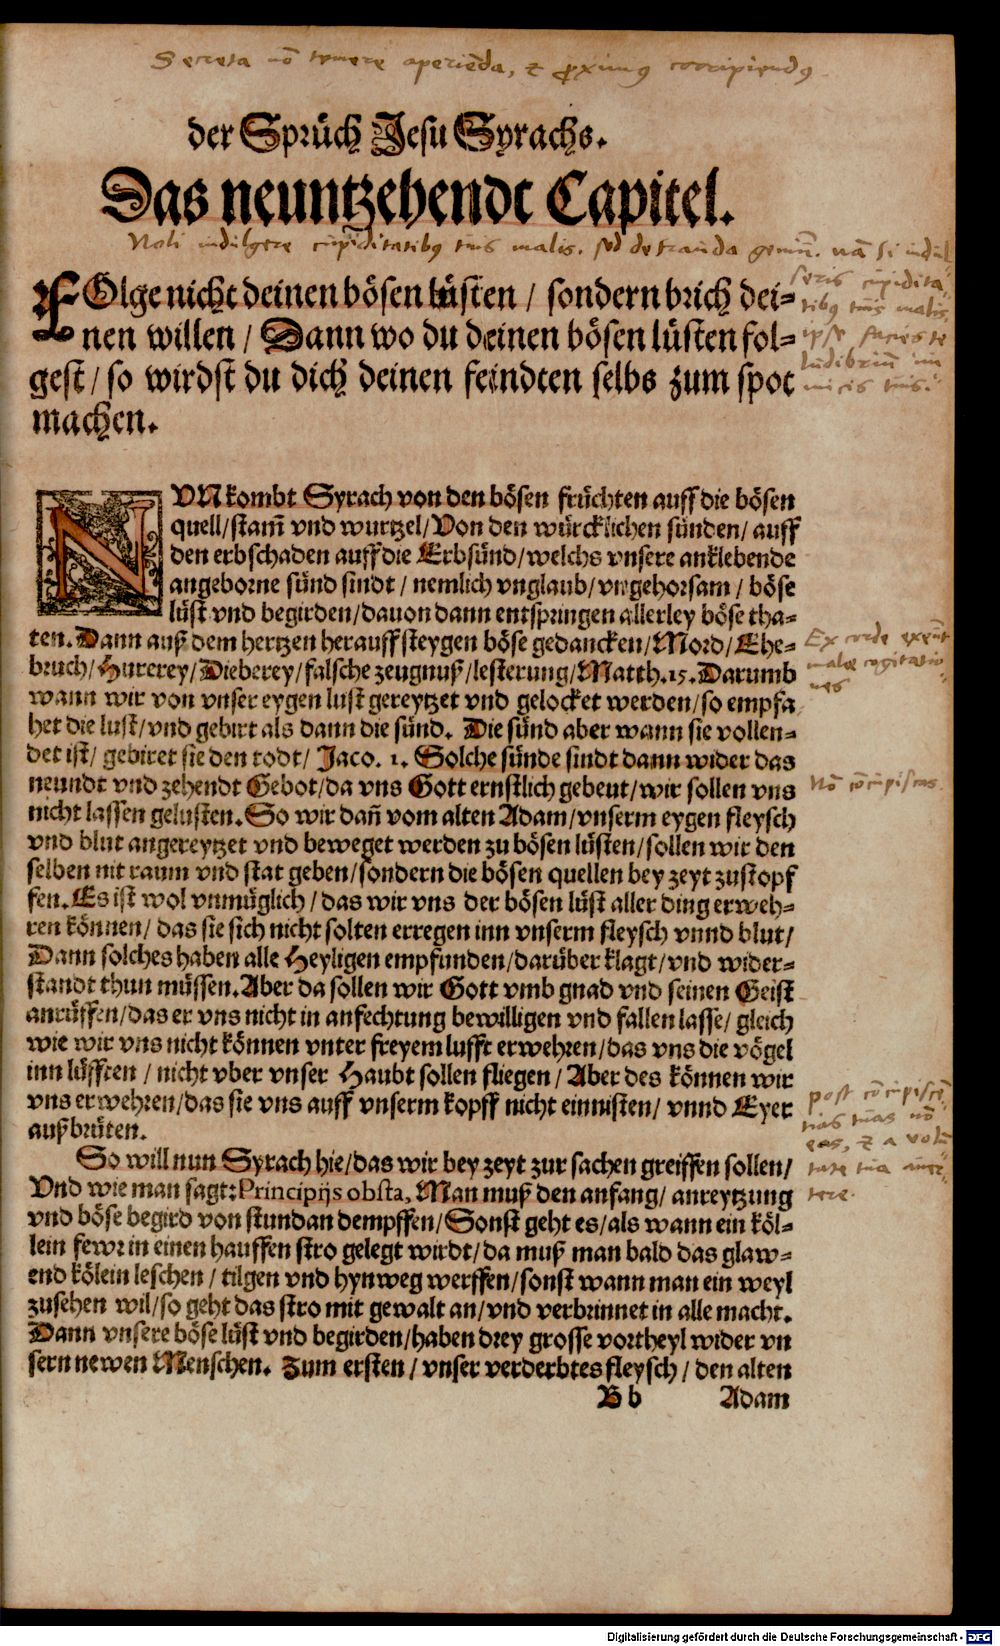 Secreta nō temere aperiēda, & ꝓximꝰ corripiendꝰ.
der Sprüch Jesu Syrachs.
Das neuntzehendt Capitel.
Noli indulgere cupiditatibꝰ tuis malis. sed detrauda genium. nā si indul
seris cupidita-
tibꝰ tuis malis,
ipse facies te
ludibriū ini
micis tuis.
FOlge nicht deinen bösen lüsten / sondern brich dei⸗
nen willen / Dann wo du deinen bösen lüsten fol⸗
gest / so wirdst du dich deinen feindten selbs zum spot
machen.
NVN kombt Syrach von den bösen früchten auff die bösen
quell / stam̄ vnd wurtzel / Von den würcklichen sünden / auff
den erbschaden auff die Erbsünd / welchs vnsere anklebende
angeborne sünd sindt / nemlich vnglaub / vngehorsam / böse
lüst vnd begirden / dauon dann entspringen allerley böse tha⸗
ten. Dann auß dem hertzen herauff steygen böse gedancken / Mord / Ehe⸗
bruch / Hurerey / Dieberey / falsche zeugnuß / lesterung / Matth. 15. Darumb
wann wir von vnser eygen lust gereytzet vnd gelocket werden / so empfa
het die lust / vnd gebirt als dann die sünd. Die sünd aber wann sie vollen⸗
det ist / gebiret sie den todt / Jaco. 1. Solche sünde sindt dann wider das
neundt vnd zehendt Gebot / da vns Gott ernstlich gebeut / wir sollen vns
nicht lassen gelusten. So wir dañ vom alten Adam / vnserm eygen fleysch
vnd blut angereytzet vnd beweget werden zu bösen lüsten / sollen wir den
selben nit raum vnd stat geben / sondern die bösen quellen bey zeyt zustopf
fen. Es ist wol vnmüglich / das wir vns der bösen lüst aller ding erweh⸗
ren können / das sie sich nicht solten erregen inn vnserm fleysch vnnd blut /
Dann solches haben alle Heyligen empfunden / darüber klagt / vnd wider⸗
standt thun müssen. Aber da sollen wir Gott vmb gnad vnd seinen Geist
anrüffen / das er vns nicht in anfechtung bewilligen vnd fallen lasse / gleich
wie wir vns nicht können vnter freyem lufft erwehren / das vns die vögel
inn lüfften / nicht vber vnser Haubt sollen fliegen / Aber des können wir
vns erwehren / das sie vns auff vnserm kopff nicht einnisten / vnnd Eyer
außbrüten.
Ex corde exeūt
malæ cogitatio
nes
Nō cōcupisces.
post cōcupiscē
tias tuas nō
eas, & a volū
tate tua auer-
tere.
So will nun Syrach hie / das wir bey zeyt zur sachen greiffen sollen /
Vnd wie man sagt: Principijs obsta, Man muß den anfang / anreytzung
vnd böse begird von stundan dempffen / Sonst geht es / als wann ein köl⸗
lein fewr in einen hauffen stro gelegt wirdt / da muß man bald das glaw⸗
end kölein leschen / tilgen vnd hynweg werffen / sonst wann man ein weyl
zusehen wil / so geht das stro mit gewalt an / vnd verbrinnet in alle macht.
Dann vnsere böse lüst vnd begirden / haben drey grosse vortheyl wider vn
sern newen Menschen. Zum ersten / vnser verderbtes fleysch / den alten
B b Adam
Digitalisierung gefördert durch die Deutsche Forschungsgemeinschaft - DFG